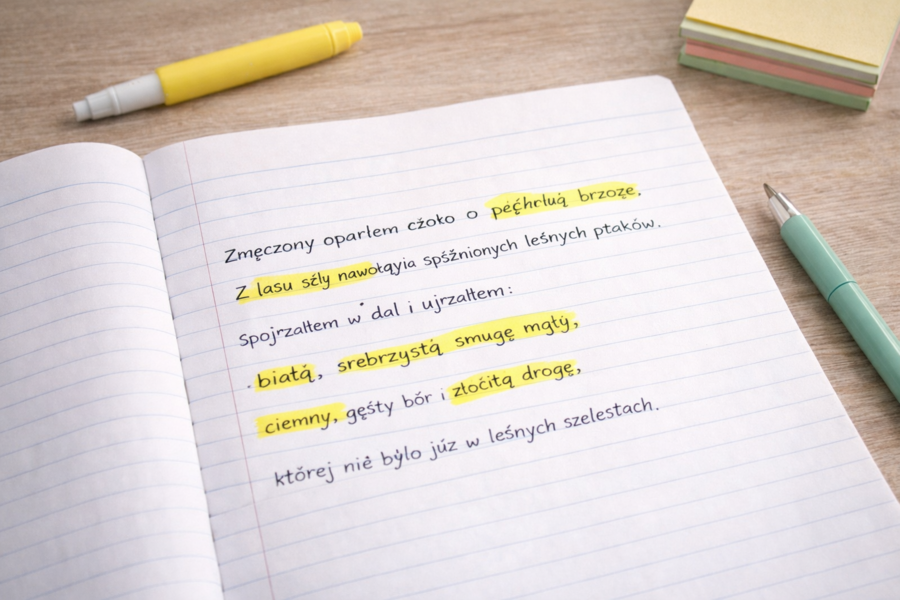 Zmęczony oparłem czoło o pęćhrluą brzozę.
Z lasu sźly nawołąyia spśźnionych leśnych ptaków.
Spojrzałtem w dal i ujrzałtem:
biatą, srebrzystą smugę mgłý,
ciemny, gęśty bór i złoćitą drogę,
której nie býlo júz w leśnych szelestach.